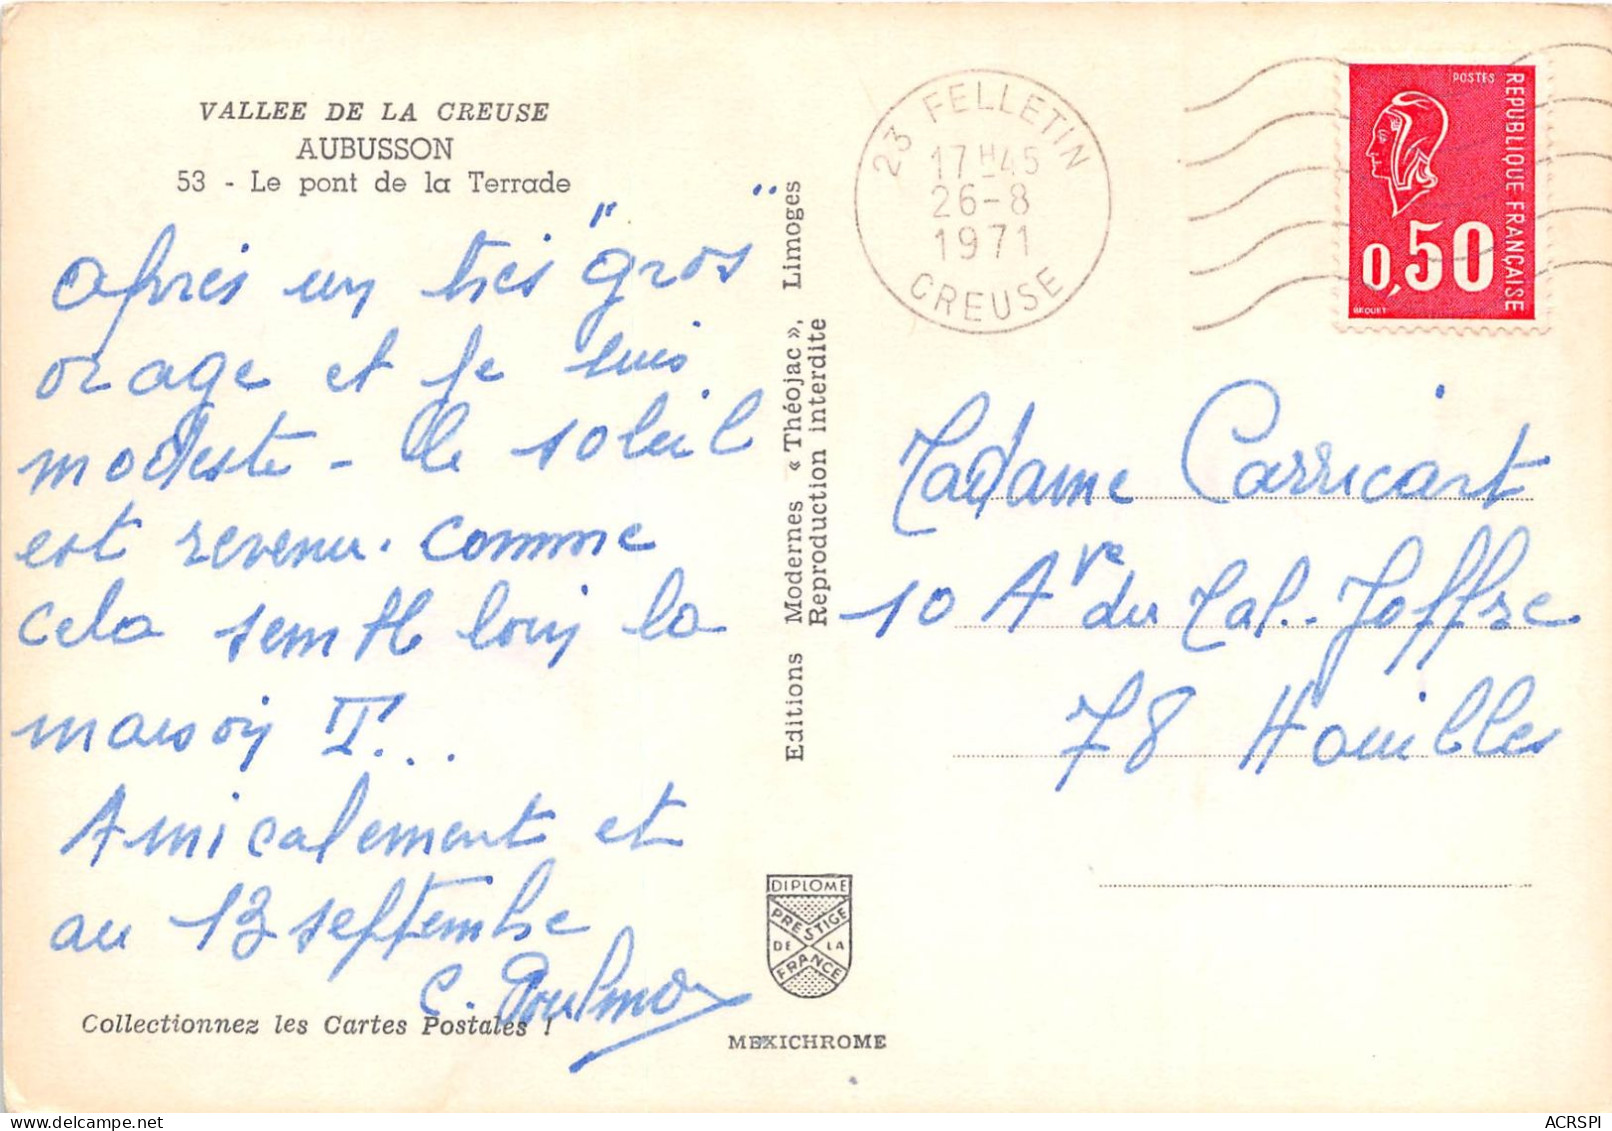 VALLEE DE LA CREUSE
AUBUSSON
53 - Le pont de la Terrade
après un très "gros"
orage et je suis
modeste - le soleil
est revenu. Comme
cela semble loin la
maison T...
Amicalement et
au 13 septembre
C.
Collectionnez les Cartes Postales !
Editions Modernes « Théojac », Limoges
Reproduction interdite
DIPLOME
PRESTIGE
DE LA
FRANCE
MEXICHROME
23 FELLETIN
17 H 45
26-8
1971
CREUSE
POSTES
REPUBLIQUE FRANÇAISE
0,50
BEQUET
Madame Carricart
10 Ave du Mal. Joffre
78 Houilles
ACRSPI